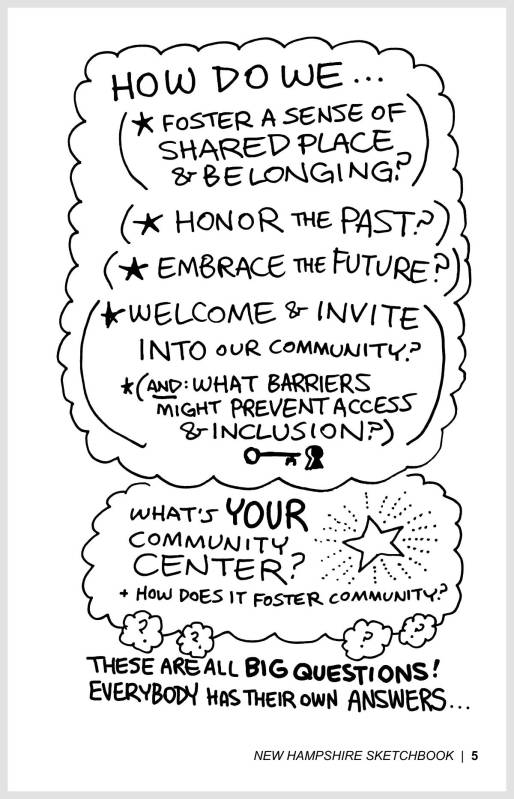 HOW DO WE...
(★ FOSTER A SENSE OF
SHARED PLACE
& BELONGING?)
(★ HONOR THE PAST?)
(★ EMBRACE THE FUTURE?)
(★ WELCOME & INVITE
INTO OUR COMMUNITY?
★(AND: WHAT BARRIERS
MIGHT PREVENT ACCESS
& INCLUSION?))
WHAT'S YOUR
COMMUNITY
CENTER?
+ HOW DOES IT FOSTER COMMUNITY?
? ? ? ?
THESE ARE ALL BIG QUESTIONS!
EVERYBODY HAS THEIR OWN ANSWERS...
NEW HAMPSHIRE SKETCHBOOK | 5